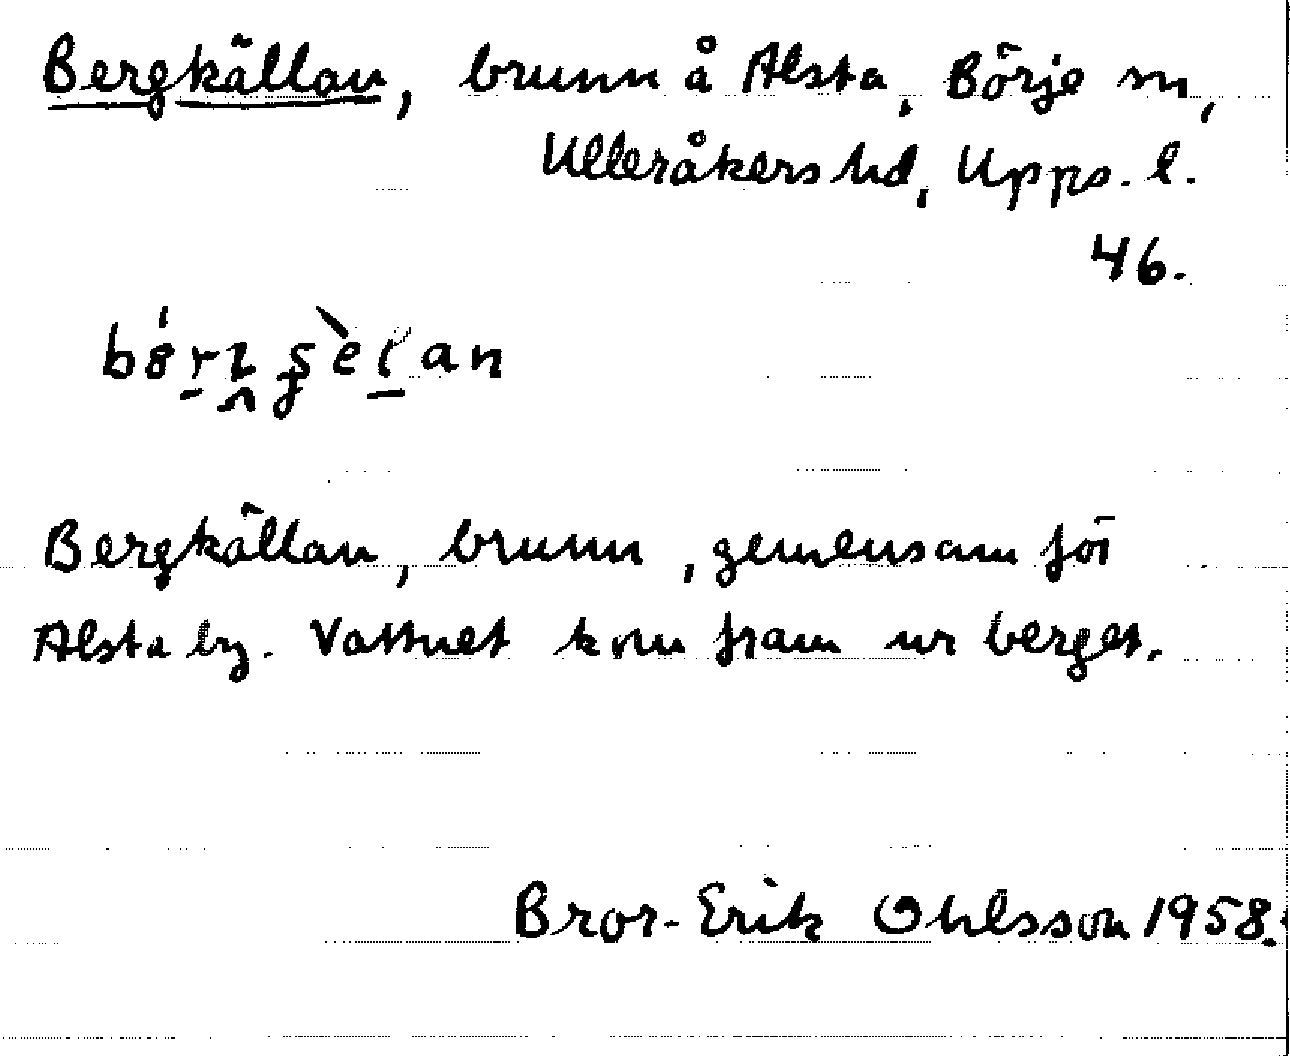 Bergkällan, brunn å Alsta, Börje sn,
Ulleråkers hd, Upps. l.
46.
Bergkällan, brunn, gemensam för
Alsta by. Vattnet kom fram ur berget.
Bror-Erik Ohlsson 1958.